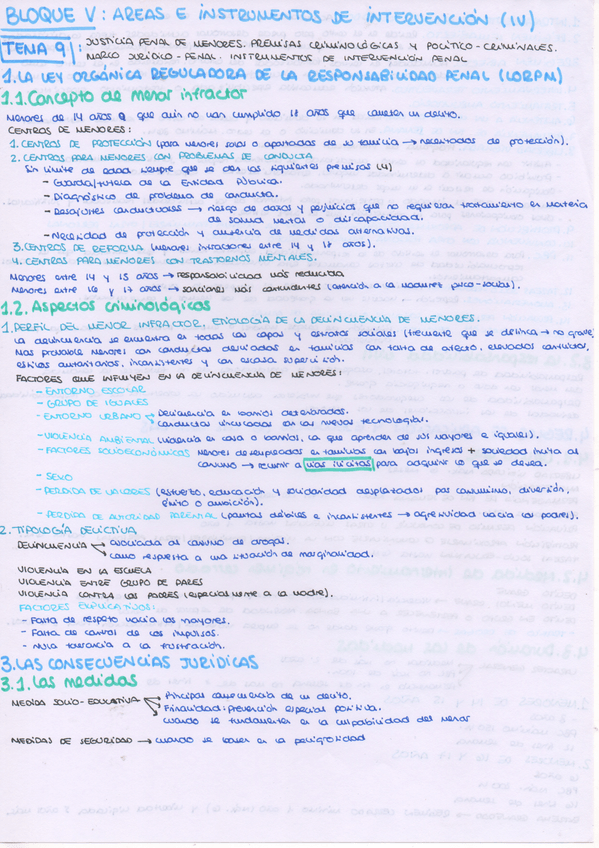 BLOQUE V: AREAS E INSTRUMENTOS DE INTERVENCIÓN (IV)
TEMA 9: JUSTICIA PENAL DE MENORES. PREMISAS CRIMINOLÓGICAS Y POLÍTICO-CRIMINALES.
MARCO JURÍDICO-PENAL. INSTRUMENTOS DE INTERVENCIÓN PENAL
1. LA LEY ORGÁNICA REGULADORA DE LA RESPONSABILIDAD PENAL (LORPM)
1.1. Concepto de menor infractor
Menores de 14 años q que aún no han cumplido 18 años que cometen un delito.
CENTROS DE MENORES:
1. CENTROS DE PROTECCIÓN (para menores solos o apartados de su familia → necesitados de protección).
2. CENTROS PARA MENORES CON PROBLEMAS DE CONDUCTA
Sin límite de edad siempre que se den las siguientes premisas (4)
- Guarda/tutela de la Entidad Pública.
- Diagnóstico de problema de conducta.
- Desajustes conductuales → riesgo de daños y perjuicios que no requieran tratamiento en materia
de salud mental o discapacidad.
- Necesidad de protección y ausencia de medidas alternativas.
3. CENTROS DE REFORMA (menores infractores entre 14 y 17 años).
4. CENTROS PARA MENORES CON TRASTORNOS MENTALES.
Menores entre 14 y 15 años → responsabilidad más reducida
Menores entre 16 y 17 años → sanciones más contundentes (atención a la madurez psico-social).
1.2. Aspectos criminológicos
1. PERFIL DEL MENOR INFRACTOR. ETIOLOGÍA DE LA DELINCUENCIA DE MENORES.
La delincuencia se encuentra en todas las capas y estratos sociales (frecuente que se delinca → no grave)
Más probable menores con conductas desviadas en familias con falta de afecto, elevados castigos,
estilos autoritarios, inconsistentes y con escasa supervisión.
FACTORES QUE INFLUYEN EN LA DELINCUENCIA DE MENORES:
- ENTORNO ESCOLAR
- GRUPO DE IGUALES
- ENTORNO URBANO Delincuencia en barrios deteriorados.
Conductas vinculadas con las nuevas tecnologías.
- VIOLENCIA AMBIENTAL (violencia en casa o barrios, la que aprenden de sus mayores e iguales).
- FACTORES SOCIOECONÓMICOS menores desempleados en familias con bajos ingresos + sociedad invita al
consumo → recurrir a vías ilícitas para adquirir lo que se desea.
- SEXO
- PÉRDIDA DE VALORES (esfuerzo, educación y solidaridad desplazados por consumismo, diversión,
éxito o ambición).
- PÉRDIDA DE AUTORIDAD PARENTAL (pautas débiles e inconsistentes → agresividad hacia los padres).
2. TIPOLOGÍA DELICTIVA
DELINCUENCIA asociada al consumo de drogas.
como respuesta a una situación de marginalidad.
VIOLENCIA EN LA ESCUELA
VIOLENCIA ENTRE GRUPO DE PARES
VIOLENCIA CONTRA LOS PADRES (especialmente a la madre).
FACTORES EXPLICATIVOS:
- Falta de respeto hacia los mayores.
- Falta de control de los impulsos.
- Nula tolerancia a la frustración.
3. LAS CONSECUENCIAS JURÍDICAS
3.1. Las medidas
MEDIDA SOCIO-EDUCATIVA Principal consecuencia de un delito.
Finalidad: Prevención especial positiva.
Cuando se fundamenten en la culpabilidad del menor
MEDIDAS DE SEGURIDAD → cuando se basen en la peligrosidad